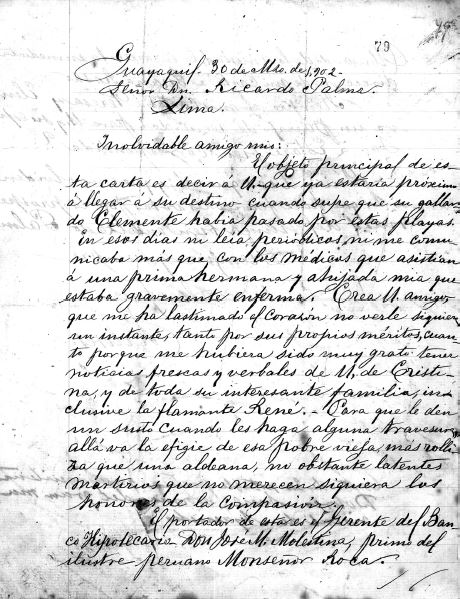 79
Guayaquil 30 de Mzo. de 1,902.
Señor Dn. Ricardo Palma.
Lima.
Inolvidable amigo mio:
El objeto principal de es-
ta carta es decir á U. que ya estaria próximo
á llegar á su destino cuando supe que su gallar
do Clemente habia pasado por estas playas.
En esos dias ni leia periódicos, ni me comu
nicaba más que con los médicos que asistian
á una prima hermana y ahijada mia que
estaba gravemente enferma. Crea U. amigo,
que me ha lastimado el corazón no verle siquiera
un instante, tanto por sus propios méritos, cuan
to porque me hubiera sido muy grato tener
noticias frescas y verbales de U, de Cristi
na, y de toda su interesante familia, in
clusive la flamante René. - Para que le den
un susto cuando les haga alguna travesura
allá va la efigie de esa pobre vieja, más rolli
za que una aldeana, no obstante latentes
martirios que no merecen siquiera los
honores de la compasión.
El portador de esta es el Gerente del Ban
co Hipotecario Don José M. Molestina, primo del
ilustre peruano Monseñor Roca.